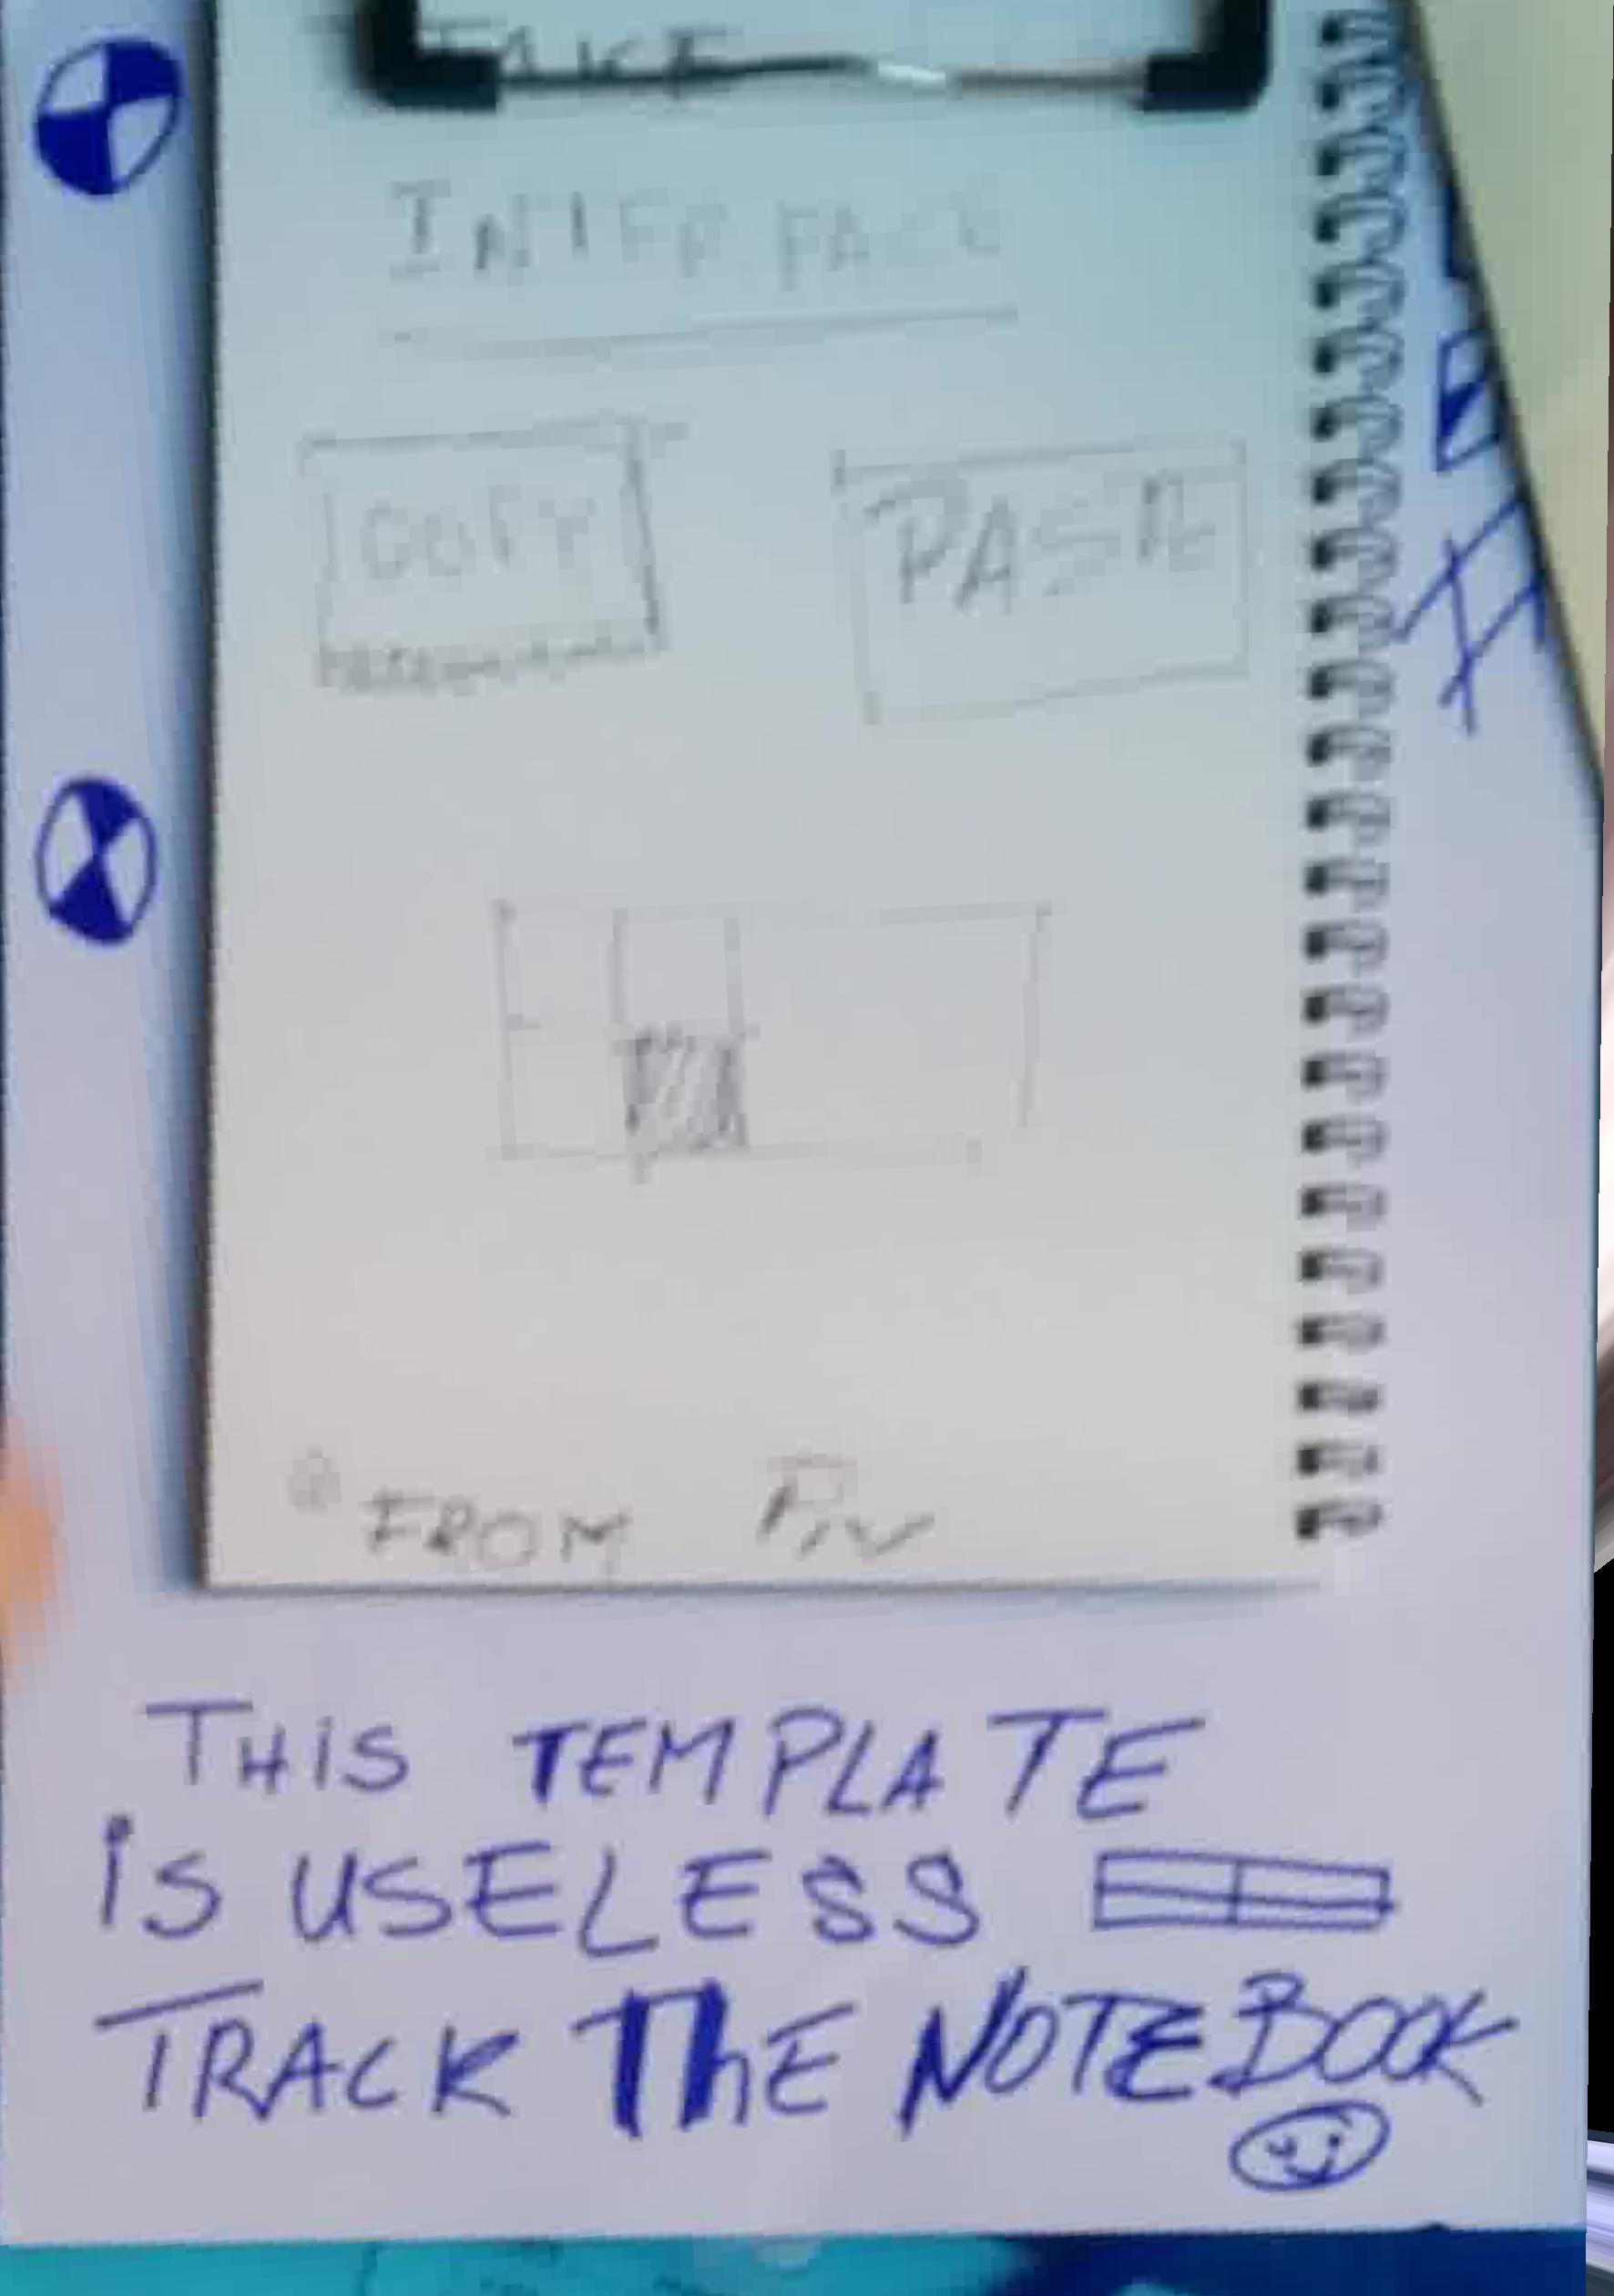 TAKE
INTERFACE
COPY PASTE
FROM
THIS TEMPLATE
IS USELESS
TRACK THE NOTEBOOK